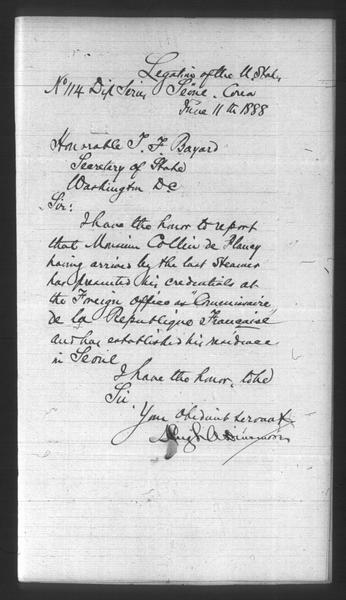 Legation of the U. States
No 114 Dip Series Seoul, Corea
June 11th 1888
Honorable T. F Bayard
Secretary of State
Washington DC
Sir:
I have the honor to report
that Monsieur Collin de Plancy
having arrived by the last Steamer
has presented his credentials at
the Foreign Office as "Commissaire
de la Republique Française
and has established his residence
in Seoul
I have the honor, to be
Sir
Your obedient servant
Hugh A Dinsmore